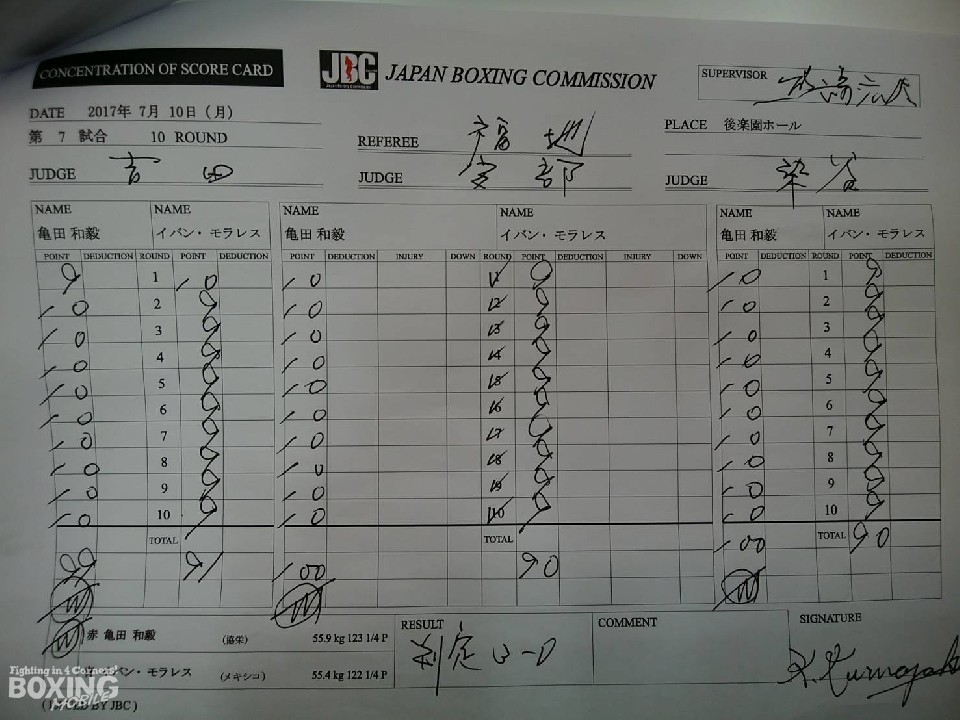 CONCENTRATION OF SCORE CARD
JBC JAPAN BOXING COMMISSION
SUPERVISOR
DATE 2017年 7月 10日 (月)
第 7 試合 10 ROUND
REFEREE 福地
PLACE 後楽園ホール
JUDGE 吉田
JUDGE 安部
JUDGE 染谷
NAME NAME NAME NAME NAME NAME
亀田 和毅 イバン・モラレス 亀田 和毅 イバン・モラレス 亀田 和毅 イバン・モラレス
POINT DEDUCTION ROUND POINT DEDUCTION POINT DEDUCTION INJURY DOWN ROUND POINT DEDUCTION INJURY DOWN POINT DEDUCTION ROUND POINT DEDUCTION
9 1 10 10 1 9 10 1 9
10 2 9 10 2 9 10 2 9
10 3 9 10 3 9 10 3 9
10 4 9 10 4 9 10 4 9
10 5 9 10 5 9 10 5 9
10 6 9 10 6 9 10 6 9
10 7 9 10 7 9 10 7 9
10 8 9 10 8 9 10 8 9
10 9 9 10 9 9 10 9 9
10 10 9 10 10 9 10 10 9
TOTAL TOTAL TOTAL
99 91 100 90 100 90
W W W
W 赤 亀田 和毅 (協栄) 55.9 kg 123 1/4 P
イバン・モラレス (メキシコ) 55.4 kg 122 1/4 P
RESULT
判定 3-0
COMMENT
SIGNATURE
Fighting in 4 Corners!
BOXING
MOBILE
BY JBC )